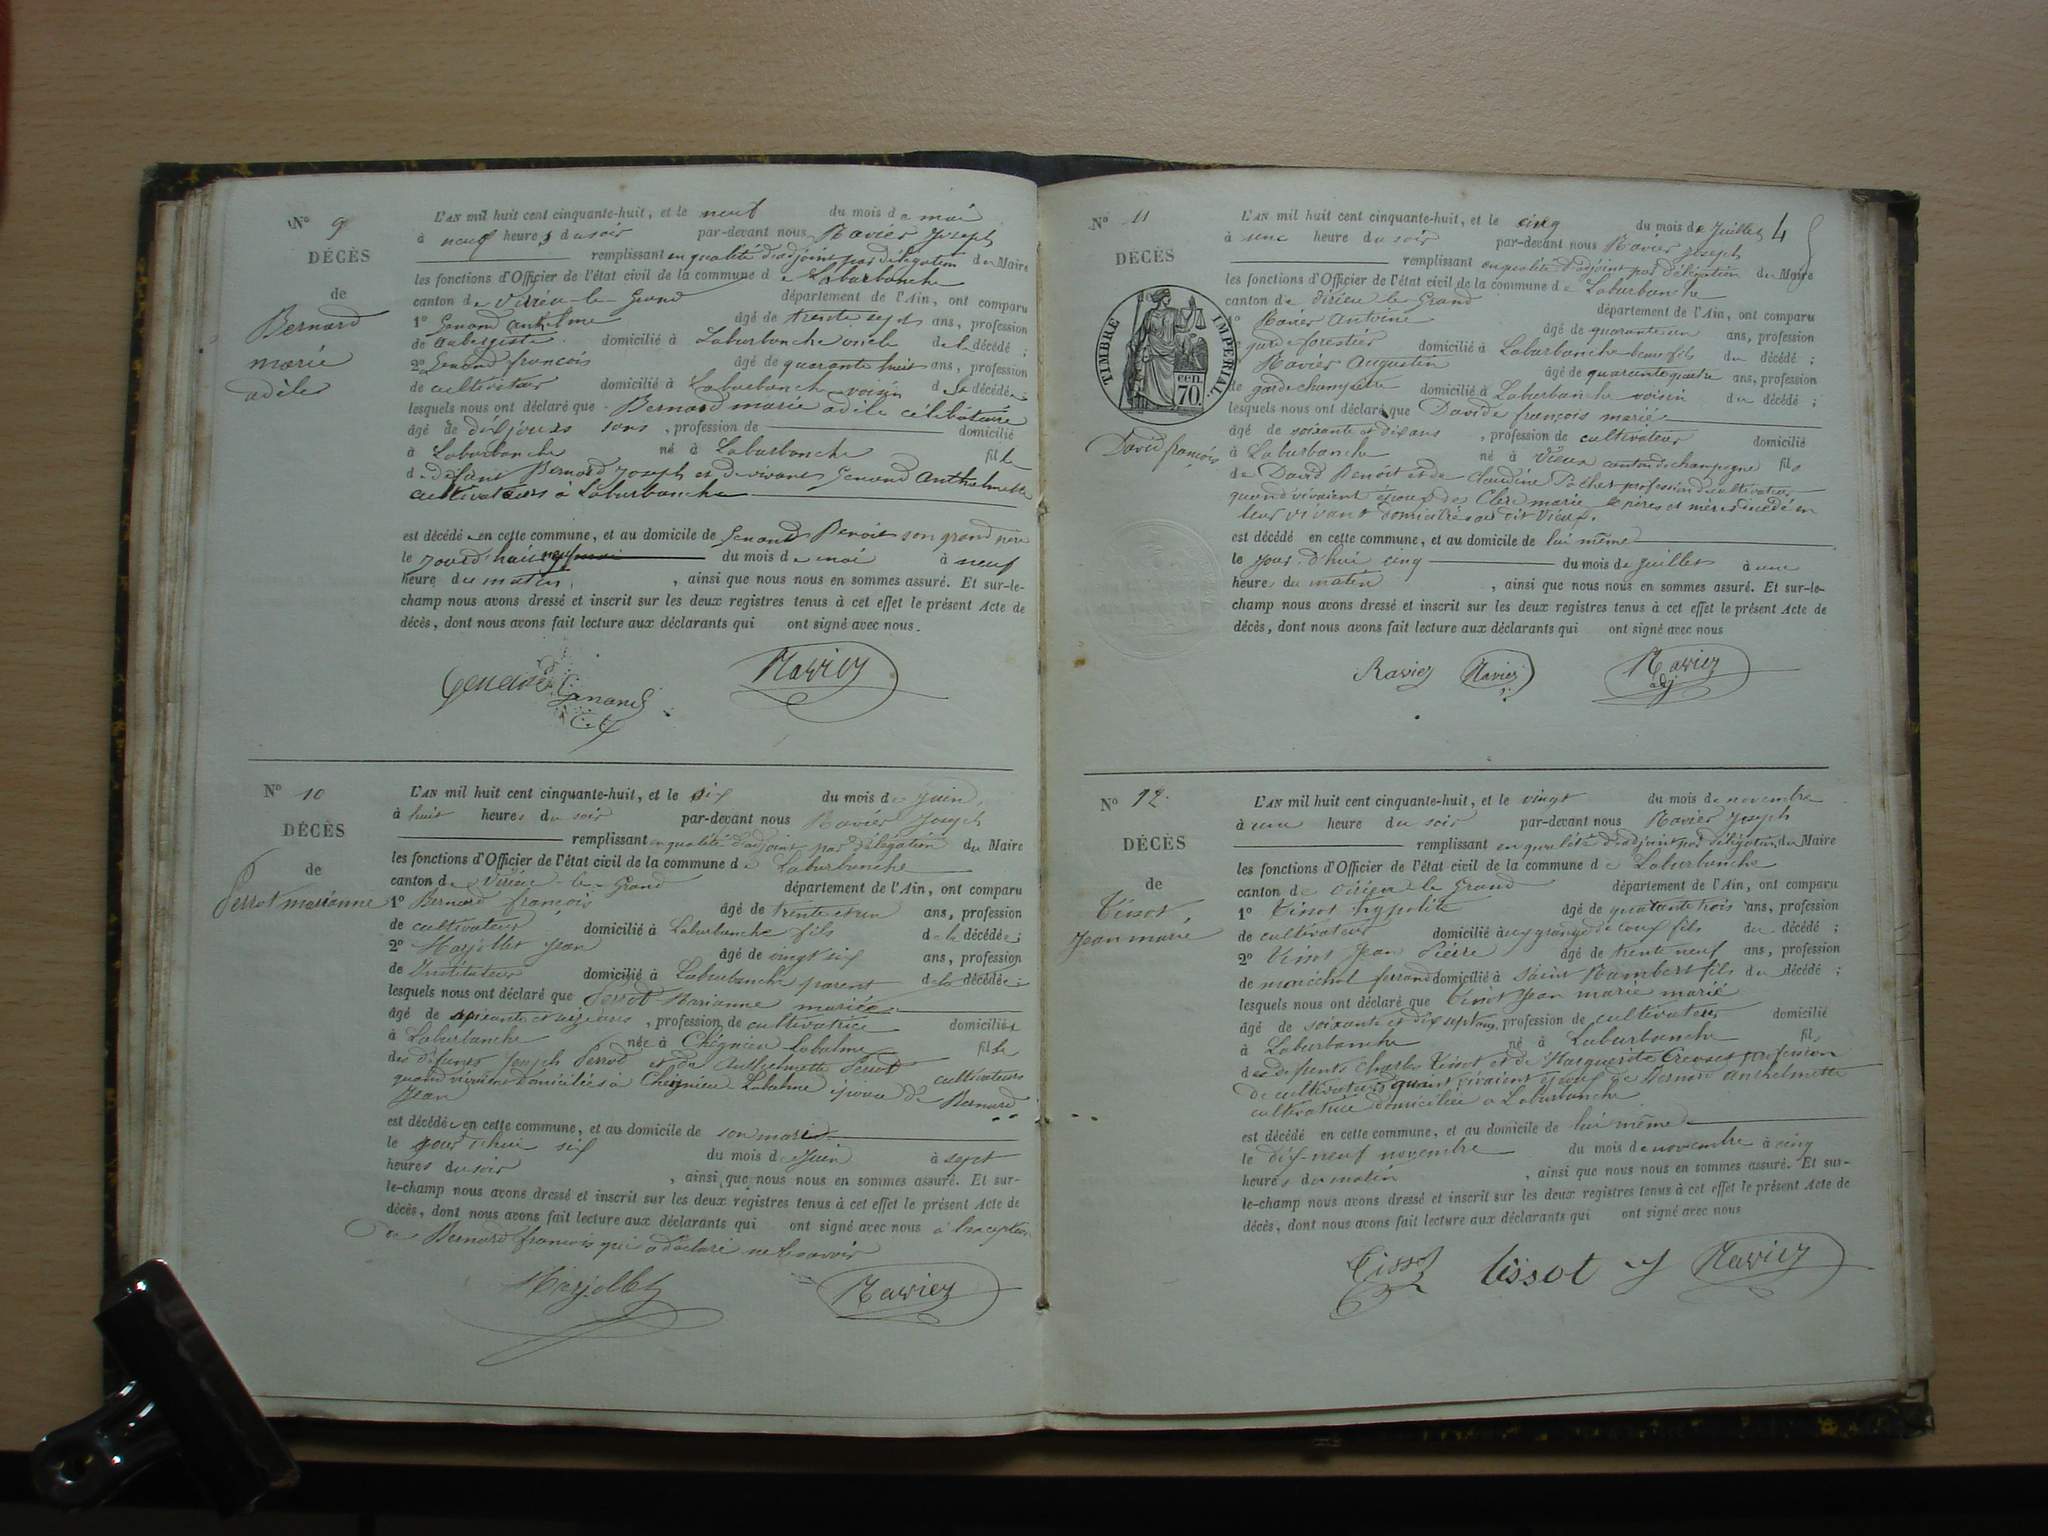 N° 9
DÉCÈS
de
Bernard
marie
adèle
L'AN mil huit cent cinquante-huit, et le neuf du mois de mai
à neuf heures du soir par-devant nous Ravier Joseph
remplissant en qualité d'adjoint par délégation du Maire
les fonctions d'Officier de l'état civil de la commune de Laburbanche
canton de Virieu-le-Grand département de l'Ain, ont comparu
1° Genand anthelme âgé de trente sept ans, profession
de aubergiste domicilié à Laburbanche oncle de la décédé ;
2° Genand francois âgé de quarante huit ans, profession
de cultivateur domicilié à Laburbanche voisin de la décédée
lesquels nous ont déclaré que Bernard marie adèle célibataire
âgé de dix jours sans , profession de domicilié
à Laburbanche né à Laburbanche fille
de défunt Bernard Joseph et de vivante Genand Anthelmette
cultivateurs à Laburbanche
est décédé en cette commune, et au domicile de Genand Benoit son grand père
le jourd'hui neuf mai du mois de mai à neuf
heure du matin , ainsi que nous nous en sommes assuré. Et sur-le-
champ nous avons dressé et inscrit sur les deux registres tenus à cet effet le présent Acte de
décès, dont nous avons fait lecture aux déclarants qui ont signé avec nous.
Genand Genand Ravier
N° 10
DÉCÈS
de
Perrot marianne
L'AN mil huit cent cinquante-huit, et le six du mois de Juin
à huit heures du soir par-devant nous Ravier Joseph
remplissant en qualité d'adjoint par délégation du Maire
les fonctions d'Officier de l'état civil de la commune de Laburbanche
canton de Virieu-le-Grand département de l'Ain, ont comparu
1° Bernard françois âgé de trente et un ans, profession
de cultivateur domicilié à Laburbanche fils de la décédée ;
2° Marjollet Jean âgé de vingt six ans, profession
de Instituteur domicilié à Laburbanche parent de la décédée ;
lesquels nous ont déclaré que Perrot Marianne mariée
âgé de soixante et ans , profession de cultivatrice domiciliée
à Laburbanche née à Chégnieu Labalme fille
des défunts Joseph Perrot et de Anthelmette Perrot cultivateurs
quand vivaient domiciliés à Chégnieu Labalme épouse de Bernard
Jean
est décédée en cette commune, et au domicile de son mari
le jour d'hui six du mois de Juin à sept
heures du soir , ainsi que nous nous en sommes assuré. Et sur-
le-champ nous avons dressé et inscrit sur les deux registres tenus à cet effet le présent Acte de
décès, dont nous avons fait lecture aux déclarants qui ont signé avec nous à l'exception
de Bernard françois qui a déclaré ne le savoir
Marjollet Ravier
N° 11
DÉCÈS
TIMBRE IMPÉRIAL.
cen.
70.
David françois
4
L'AN mil huit cent cinquante-huit, et le cinq du mois de Juillet
à une heure du soir par-devant nous Ravier Joseph
remplissant en qualité d'adjoint par délégation du Maire
les fonctions d'Officier de l'état civil de la commune de Laburbanche
canton de Virieu-le-Grand département de l'Ain, ont comparu
1° Ravier Antoine âgé de quarante un ans, profession
de garde forestier domicilié à Laburbanche beau fils du décédé ;
Ravier Augustin âgé de quarante quatre ans, profession
de garde champêtre domicilié à Laburbanche voisin du décédé ;
lesquels nous ont déclaré que David françois marié
âgé de soixante et dix ans , profession de cultivateur domicilié
à Laburbanche né à Vieux canton de champagne fils
de David Benoit et de Claudine profession de cultivateur
quand vivaient époux de Clerc marie père et mère décédé en
leur vivant domiciliés au dit Vieux.
est décédé en cette commune, et au domicile de lui même
le jour d'hui cinq du mois de Juillet à une
heure du matin , ainsi que nous nous en sommes assuré. Et sur-le-
champ nous avons dressé et inscrit sur les deux registres tenus à cet effet le présent Acte de
décès, dont nous avons fait lecture aux déclarants qui ont signé avec nous
Ravier Ravier Ravier
adj
N° 12
DÉCÈS
de
Tissot
Jean marie
L'AN mil huit cent cinquante-huit, et le vingt du mois de novembre
à une heure du soir par-devant nous Ravier Joseph
remplissant en qualité d'adjoint par délégation du Maire
les fonctions d'Officier de l'état civil de la commune de Laburbanche
canton de Virieu le Grand département de l'Ain, ont comparu
1° Tissot hyppolite âgé de quarante trois ans, profession
de cultivateur domicilié à fils du décédé ;
2° Tissot Jean Pierre âgé de trente neuf ans, profession
de maréchal ferrand domicilié à Saint Rambert fils du décédé ;
lesquels nous ont déclaré que Tissot Jean marie marié
âgé de soixante et dix sept ans, profession de cultivateur domicilié
à Laburbanche né à Laburbanche fils
des défunts Charles Tissot et de Marguerite profession
de cultivateurs quand vivaient époux de Bernard anthelmette
cultivatrice domiciliée a Laburbanche
est décédé en cette commune, et au domicile de lui même
le dix-neuf novembre du mois de novembre à cinq
heures du matin , ainsi que nous nous en sommes assuré. Et sur-
le-champ nous avons dressé et inscrit sur les deux registres tenus à cet effet le présent Acte de
décès, dont nous avons fait lecture aux déclarants qui ont signé avec nous
Tissot tissot J Ravier